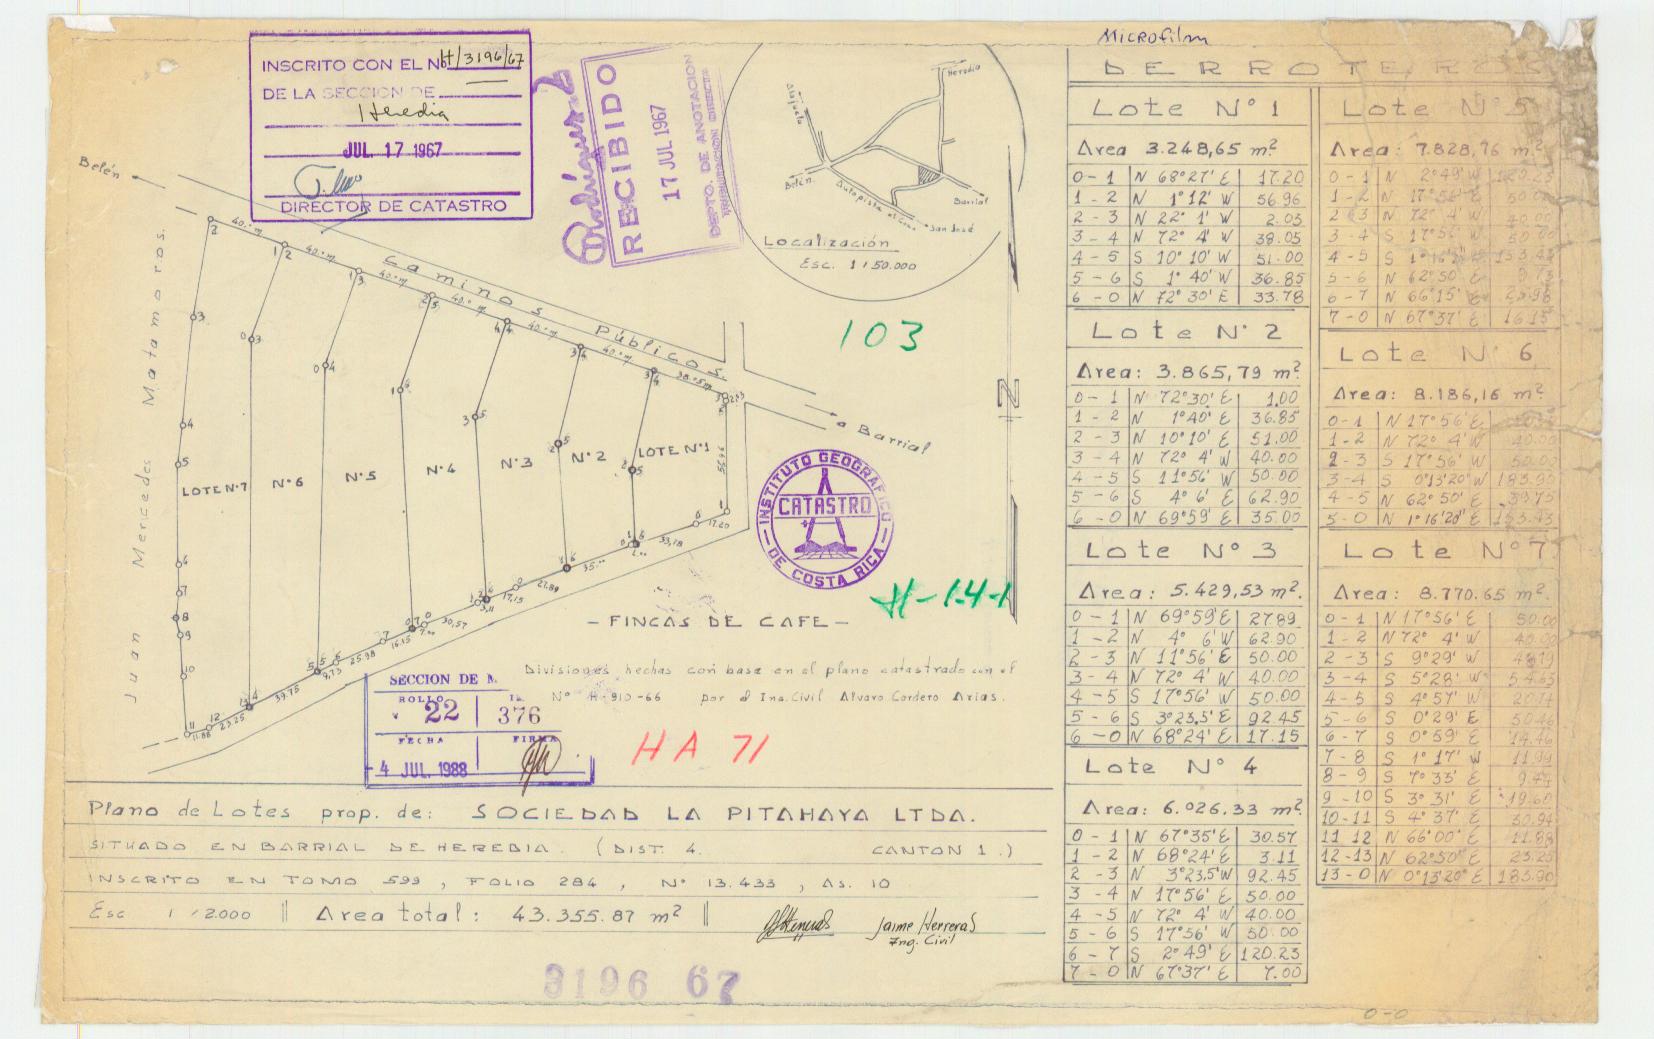 Microfilm
INSCRITO CON EL Nº H/3196/67
DE LA SECCION DE
Heredia
JUL 17 1967
DIRECTOR DE CATASTRO
RECIBIDO
17 JUL 1967
DEPTO. DE ANOTACION
Heredia
Alajuela
Belén
Autopista
San José
Barrial
Localización
Esc. 1:50.000
Belén
Caminos Públicos.
a Barrial
Juan Mercedes Matamoros.
40.ºm
40.ºm
40.ºm
40.ºm
40.ºm
40.ºm
38.05m
2.03
56.96
17.20
33.78
1.00
35.00
27.89
17.15
3.11
30.57
7.00
16.15
25.98
9.73
39.75
23.25
11.88
LOTE Nº7
Nº6
Nº5
Nº4
Nº3
Nº2
LOTE Nº1
103
N
INSTITUTO GEOGRAFICO
CATASTRO
DE COSTA RICA
H-14-1
- FINCAS DE CAFE -
Divisiones hechas con base en el plano catastrado con el
Nº H-910-66 por el Ing. Civil Alvaro Cordero Arias.
SECCION DE M.
ROLLO
22 376
FECHA FIRMA
4 JUL. 1988
HA 71
Plano de Lotes prop. de: SOCIEDAD LA PITAHAYA LTDA.
SITUADO EN BARRIAL DE HEREDIA. (DIST. 4. CANTON 1.)
INSCRITO EN TOMO 599, FOLIO 284, Nº 13.433, As. 10
Esc 1/2.000 || Area total: 43.355.87 m² ||
Jaime Herreras
Ing. Civil
3196 67
DERROTEROS
Lote Nº 1
Area 3.248,65 m².
0-1 N 68°27' E 17.20
1-2 N 1°12' W 56.96
2-3 N 22° 1' W 2.03
3-4 N 72° 4' W 38.05
4-5 S 10°10' W 51.00
5-6 S 1°40' W 36.85
6-0 N 72°30' E 33.78
Lote Nº 2
Area: 3.865,79 m².
0-1 N 72°30' E 1.00
1-2 N 1°40' E 36.85
2-3 N 10°10' E 51.00
3-4 N 72° 4' W 40.00
4-5 S 11°56' W 50.00
5-6 S 4° 6' E 62.90
6-0 N 69°59' E 35.00
Lote Nº 3
Area: 5.429,53 m².
0-1 N 69°59' E 27.89
1-2 N 4° 6' W 62.90
2-3 N 11°56' E 50.00
3-4 N 72° 4' W 40.00
4-5 S 17°56' W 50.00
5-6 S 3°23,5' E 92.45
6-0 N 68°24' E 17.15
Lote Nº 4
Area: 6.026.33 m².
0-1 N 67°35' E 30.57
1-2 N 68°24' E 3.11
2-3 N 3°23,5' W 92.45
3-4 N 17°56' E 50.00
4-5 N 72° 4' W 40.00
5-6 S 17°56' W 50.00
6-7 S 2°49' E 120.23
7-0 N 67°37' E 7.00
Lote Nº 5
Area: 7.828,76 m².
0-1 N 2°49' W 120.23
1-2 N 17°56' E 50.00
2-3 N 72° 4' W 40.00
3-4 S 17°56' W 50.00
4-5 S 153.43
5-6 N 62°50' E 9.73
6-7 N 66°15' E 25.98
7-0 N 67°37' E 16.15
Lote Nº 6
Area: 8.186,16 m².
0-1 N 17°56' E
1-2 N 72° 4' W 40.00
2-3 S 17°56' W
3-4 S 0°13'20" W 183.90
4-5 N 62°50' E 39.75
5-0 N 1°16'20" E 153.43
Lote Nº 7
Area: 8.770.65 m².
0-1 N 17°56' E 50.00
1-2 N 72° 4' W 40.00
2-3 S 9°29' W
3-4 S 5°28' W 54.63
4-5 S 4°57' W 20.14
5-6 S 0°29' E 50.46
6-7 S 0°59' E 14.46
7-8 S 1°17' W 11.99
8-9 S 7°33' E 9.44
9-10 S 3°31' E 19.60
10-11 S 4°37' E 30.94
11 12 N 66°00' E 11.88
12-13 N 62°50' E 23.25
13-0 N 0°13'20" E 183.90
0-0